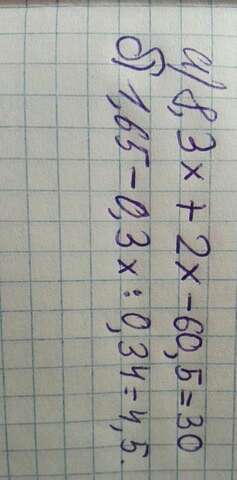 а) 8,3x + 2x - 60,5 = 30
б) 1,65 - 0,3x : 0,34 = 4,5.